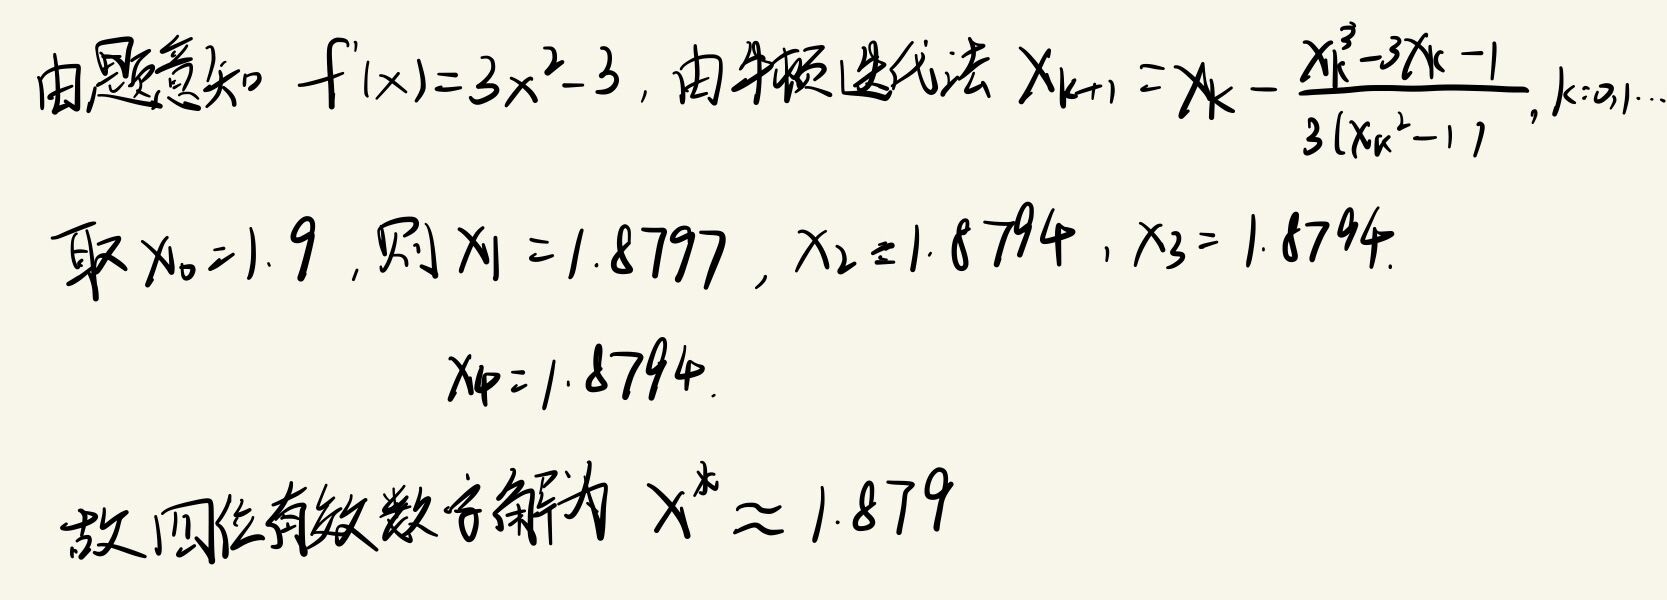 由题意知 f'(x)=3x²-3, 由牛顿迭代法 X_{k+1}=X_k-\frac{X_k^3-3X_k-1}{3(X_k^2-1)}, k=0,1...
取 x_0=1.9, 则 x_1=1.8797, x_2=1.8794, x_3=1.8794.
x_4=1.8794.
故四位有效数字解为 x*≈1.879